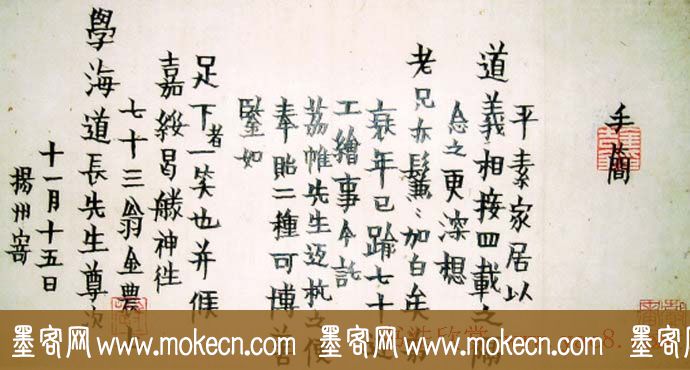 手簡
平素家居以
道義相接四載之隔
念之更深想
老兄亦鬚鬢加白矣
衰年已踰七十
工繪事今託
荔帷先生返杭之便
奉貽二種可博
鑒如
足下者一笑也并候
嘉綏曷勝神徃
七十三翁金農
學海道長先生尊
十一月十五日
揚州寄
墨客网 www.mokecn.com 墨客网 www.mokecn.com 墨客网